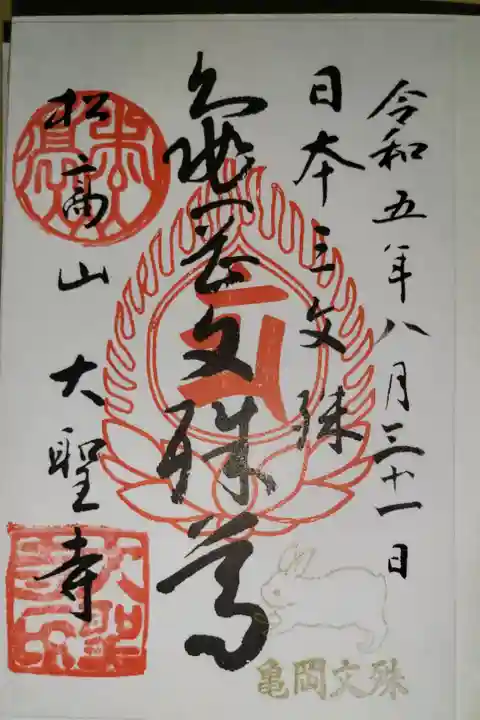 令和五年八月三十一日
日本三文殊
亀岡文殊尊
松高山 大聖寺
亀岡文殊